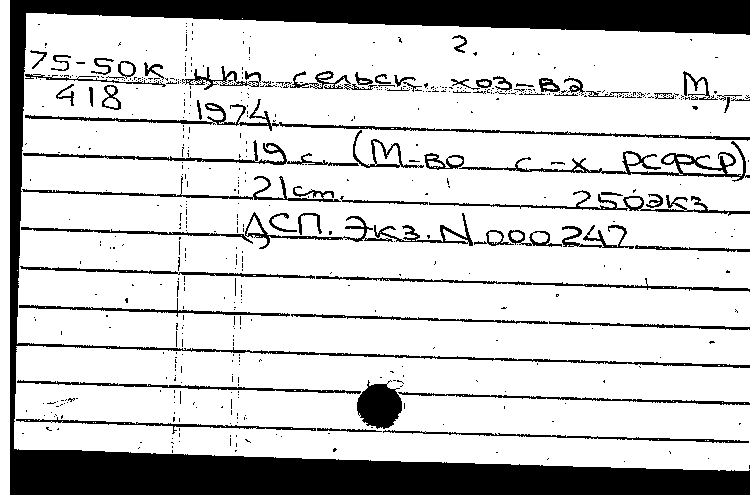 2.
75-50К ции сельск. хоз-ва. М.,
418 1974.
19 с. (М-во с-х. РСФСР)
21 cm. 250экз
ДСП. Экз. N 000247